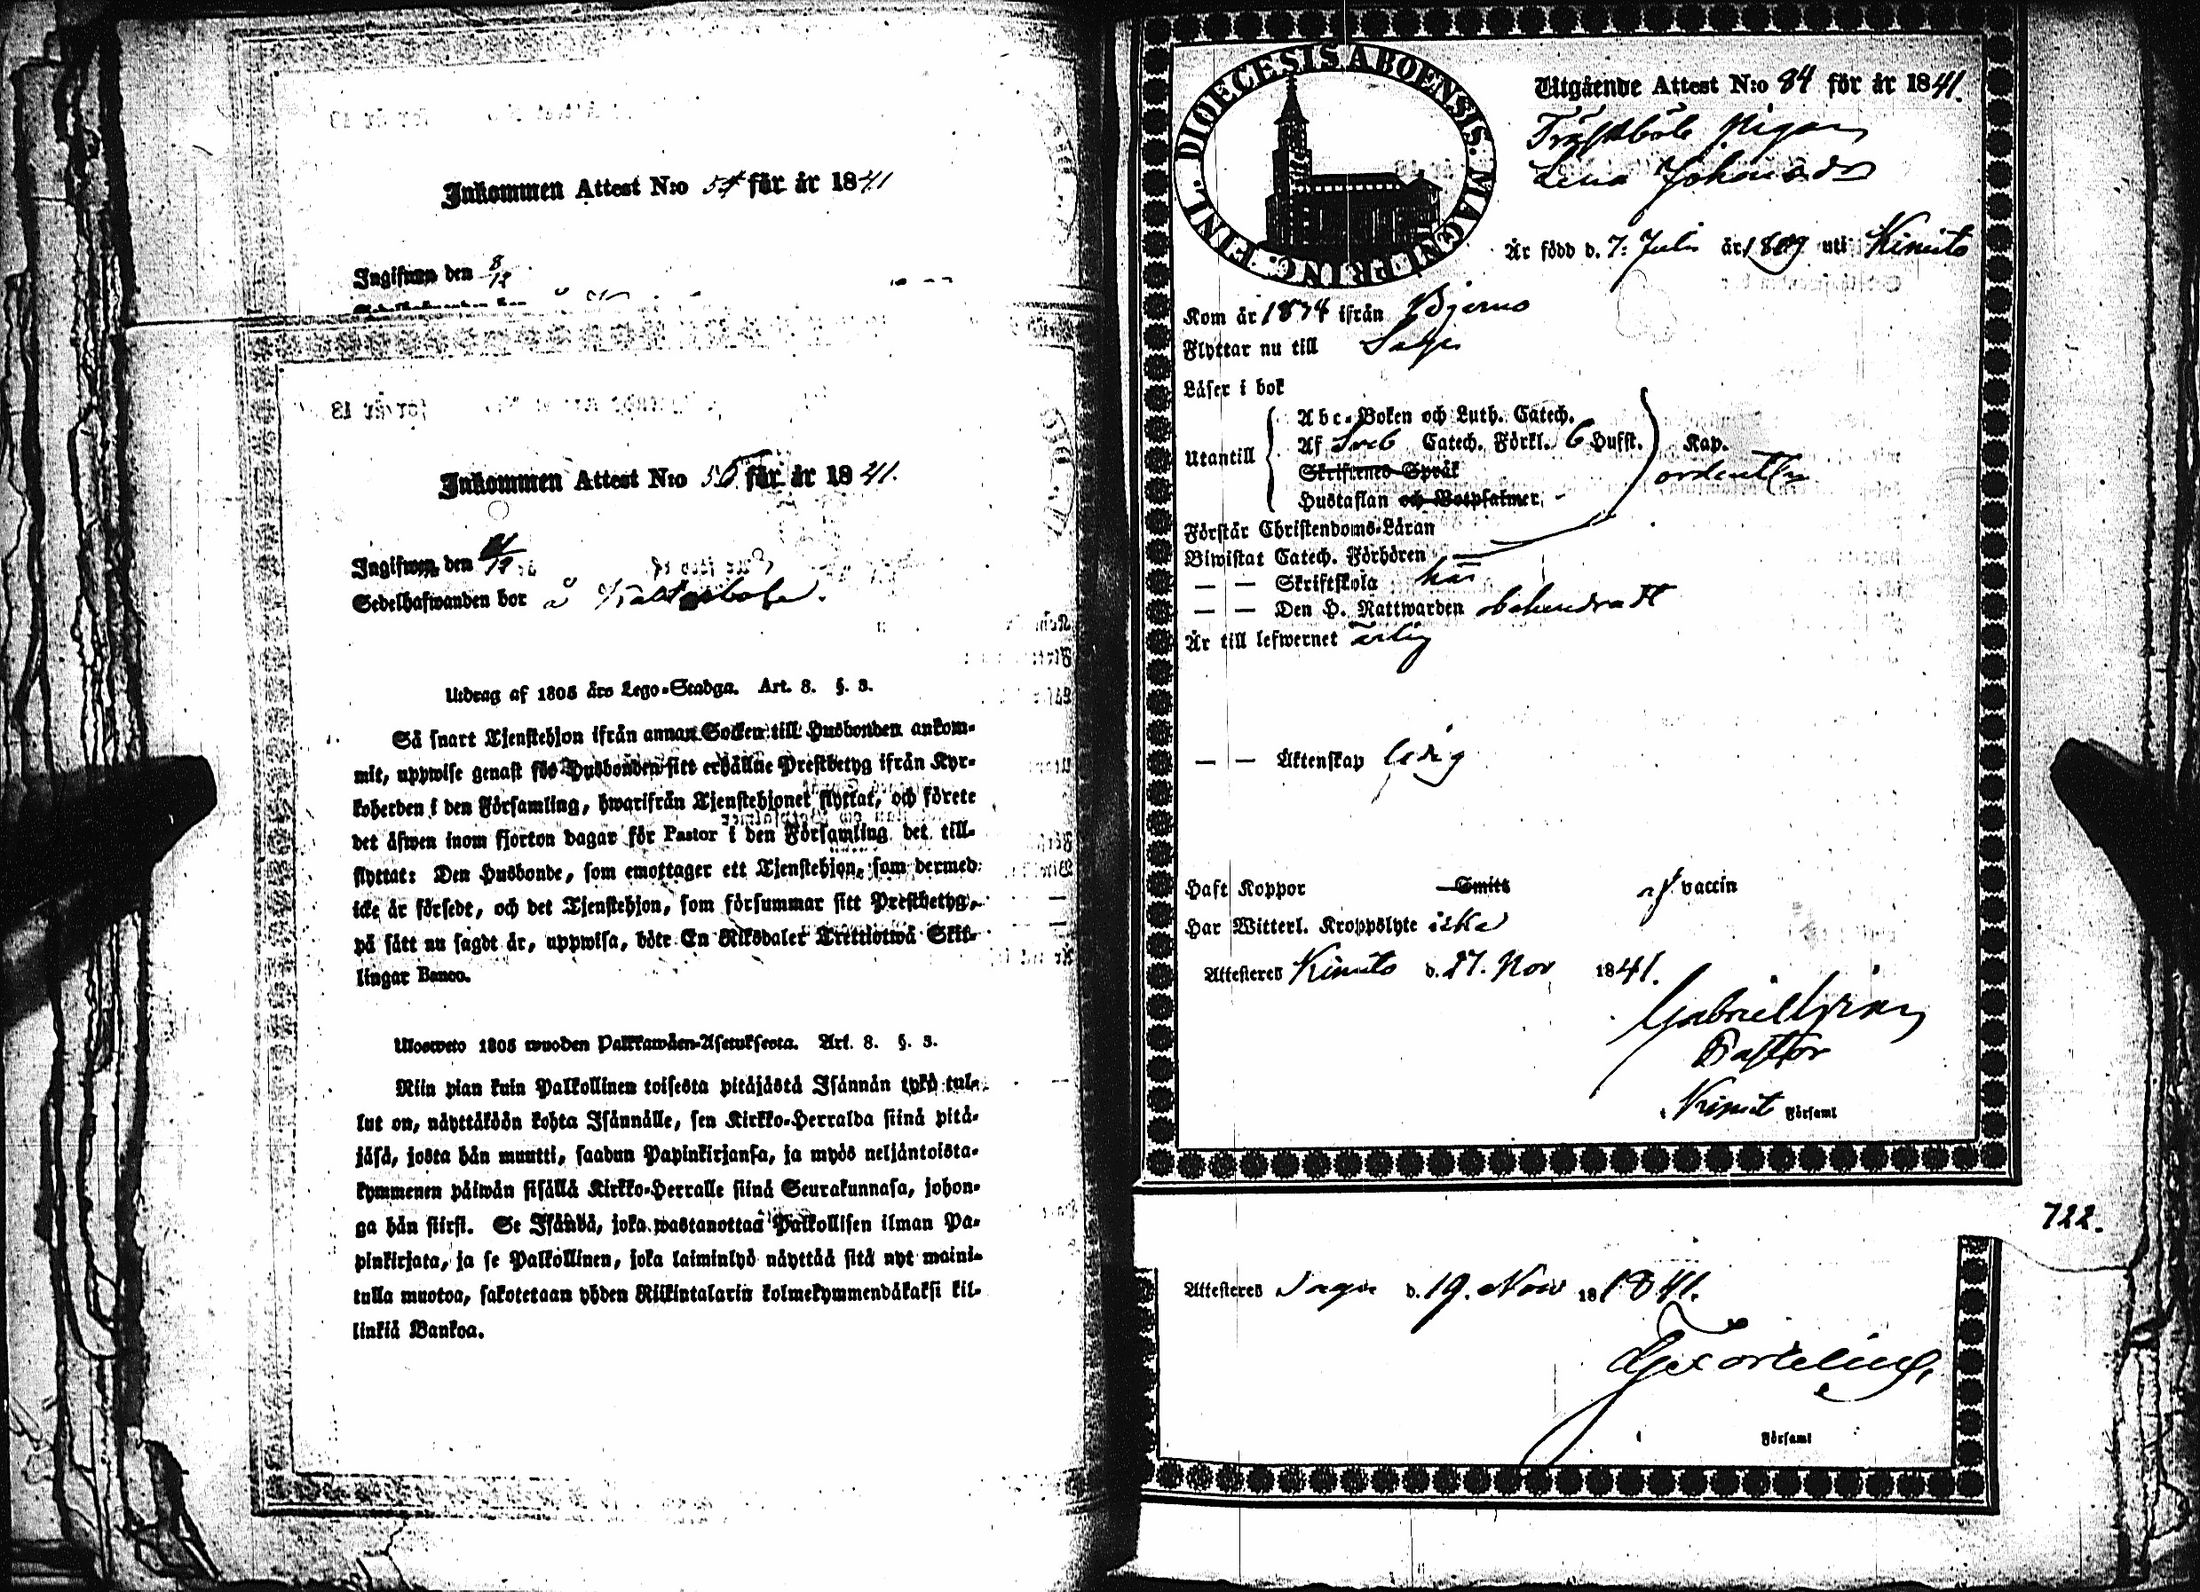 Inkommen Attest N:o 54 för år 1841
Ingifwen den 8/12
Inkommen Attest N:o 56 för år 1841.
Ingifwen den /12
Sedelhafwanden bor å
Utdrag af 1805 års Lego-Stadga. Art. 8. §. 3.
Så snart Tjenstehjon ifrån annan Socken till Husbonden ankom-
mit, uppwise genast för Husbonden sitt erhållne Prestbetyg ifrån Kyr-
koherden i den Församling, hwarifrån Tjenstehjonet flyttat, och förete
det äfwen inom fjorton dagar för Pastor i den Församling det till-
flyttat: Den Husbonde, som emottager ett Tjenstehjon, som dermed
icke är försedt, och det Tjenstehjon, som försummar sitt Prestbetyg,
på sätt nu sagdt är, uppwisa, böte En Riksdaler Trettiotwå Skil-
lingar Banco.
Ulosweto 1805 wuoden Palkkawäen-Asetuksesta. Art. 8. §. 3.
Niin pian kuin Palkollinen toisesta pitäjästä Isännän tykö tul-
lut on, näyttäköön kohta Isännälle, sen Kirkko-Herralda siinä pitä-
jäsä, josta hän muutti, saadun Papinkirjansa, ja myös neljäntoista-
kymmenen päiwän sisällä Kirkko-Herralle siinä Seurakunnasa, johon-
ga hän siirst. Se Isändä, joka wastanottaa Palkollisen ilman Pa-
pinkirjata, ja se Palkollinen, joka laiminlyö näyttää sitä nyt maini-
tulla muotoa, sakotetaan yhden Riikintalarin kolmekymmendäkaksi kil-
linkiä Bankoa.
DIOECESIS ABOENSIS. MAGNI PRINC. FINL.
Utgående Attest N:o 84 för år 1841.
Träskböle Pigan
Lena Johansdr
Är född d. 7. Juli år 1809 uti Kimito
Kom år 1834 ifrån Bjerno
Flyttar nu till Sagu
Läser i bok
Abc-Boken och Luth. Catech.
Utantill Af Sveb Catech. Förkl. 6 Hufst. Kap.
Skriftenes Språk ordentl
Hustaflan och Botpsalmer.
Förstår Christendoms-Läran
Biwistat Catech. Förhören
— — Skriftskola här
— — Den H. Nattwarden obehindradt
Är till lefwernet ärlig
— — Äktenskap ledig
Haft Koppor Smitt af vaccin
Har Witterl. Kroppslyte icke
Attesteres Kimito d. 27. Nov 1841.
Gabriel
Pastor
i Kimito Församl
722.
Attesteres Sagu d. 19. Nov 18 1841.
Församl